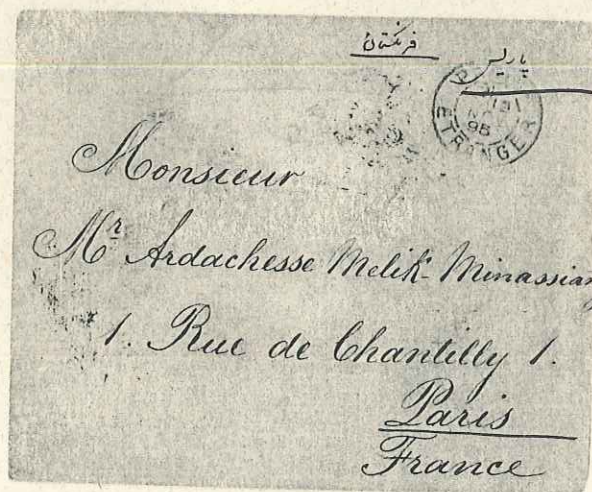 فرنگستان پاریس
ETRANGER
95
Monsieur
Mr Ardachesse Melik-Minassian
1. Rue de Chantilly 1.
Paris
France